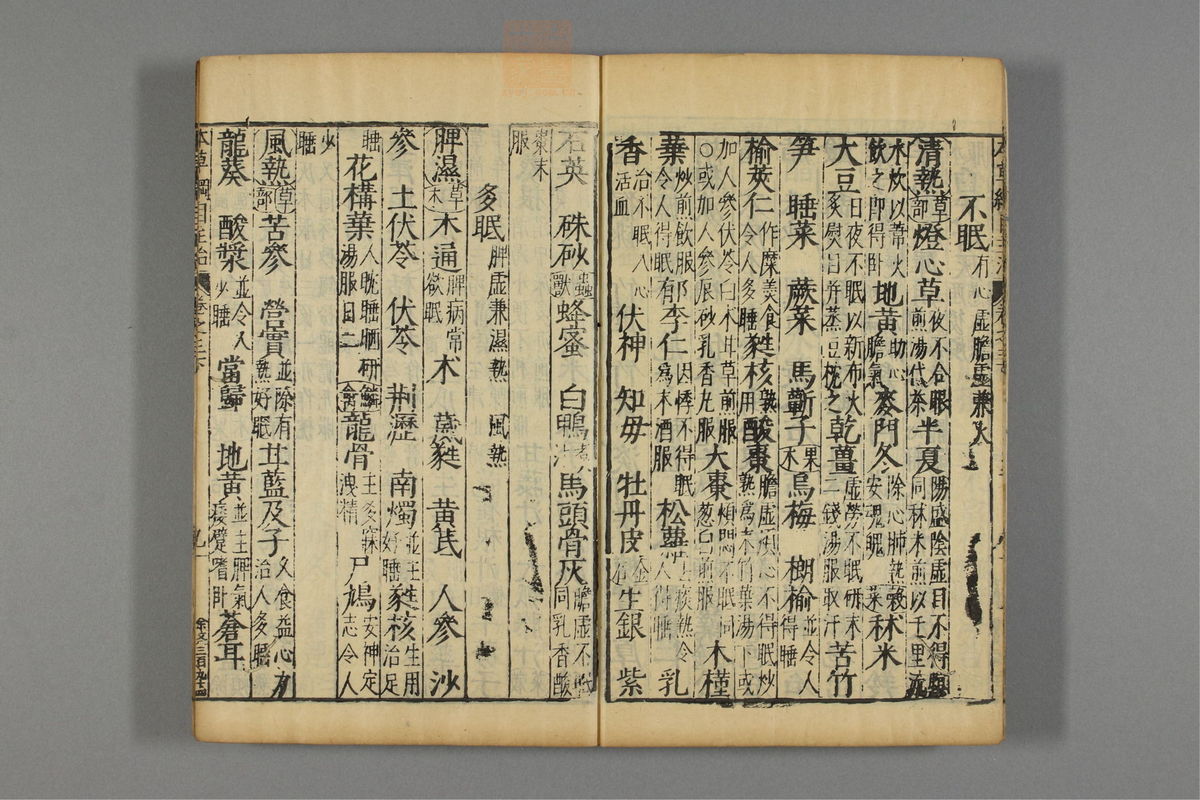 不眠有心虛膽虛兼火
清熱草部燈心草夜不合眼煎湯代茶半夏陽盛陰虛目不得瞑同秫米煎以千里流
水炊以葦火飲之即得臥地黃助心膽氣麥門冬除心肺熱安魂魄穀菜秫米
大豆日夜不眠以新布火炙熨目并蒸豆枕之乾薑虛勞不眠研末二錢湯服取汗苦竹
笋 睡菜 蕨菜 馬蘄子果木烏梅 榔榆並令人得睡
榆莢仁作糜羹食令人多睡蕤核熟用酸棗膽虛煩心不得眠炒熟為末竹葉湯下或
加人參伏苓白朮甘草煎服○或加人參辰砂乳香丸服大棗煩悶不眠同葱白煎服木槿
葉炒煎飲服令人得眠郁李仁因悸不得眠為末酒服松蘿去痰熱令人得睡乳
香治不眠入心活血 伏神 知母 牡丹皮金石生銀 紫
石英 硃砂蟲獸蜂蜜 白鴨煮汁馬頭骨灰膽虛不眠同乳香酸
棗末服
多眠脾虛兼濕熱 風熱
脾濕草木木通脾病常欲眠朮 葳蕤 黃芪 人參 沙
參 土伏苓 伏苓 荆瀝 南燭並主好睡蕤核生用治足
睡花構葉人耽睡晒研湯服日二鱗禽龍骨主多寐洩精 尸鳩安神定志令人
少睡
風熱草部苦參 營實並除有熱好眠甘藍及子久食益心力治人多睡
龍葵 酸漿並令人少睡 當歸 地黃並主脾氣痿躄嗜卧蒼耳